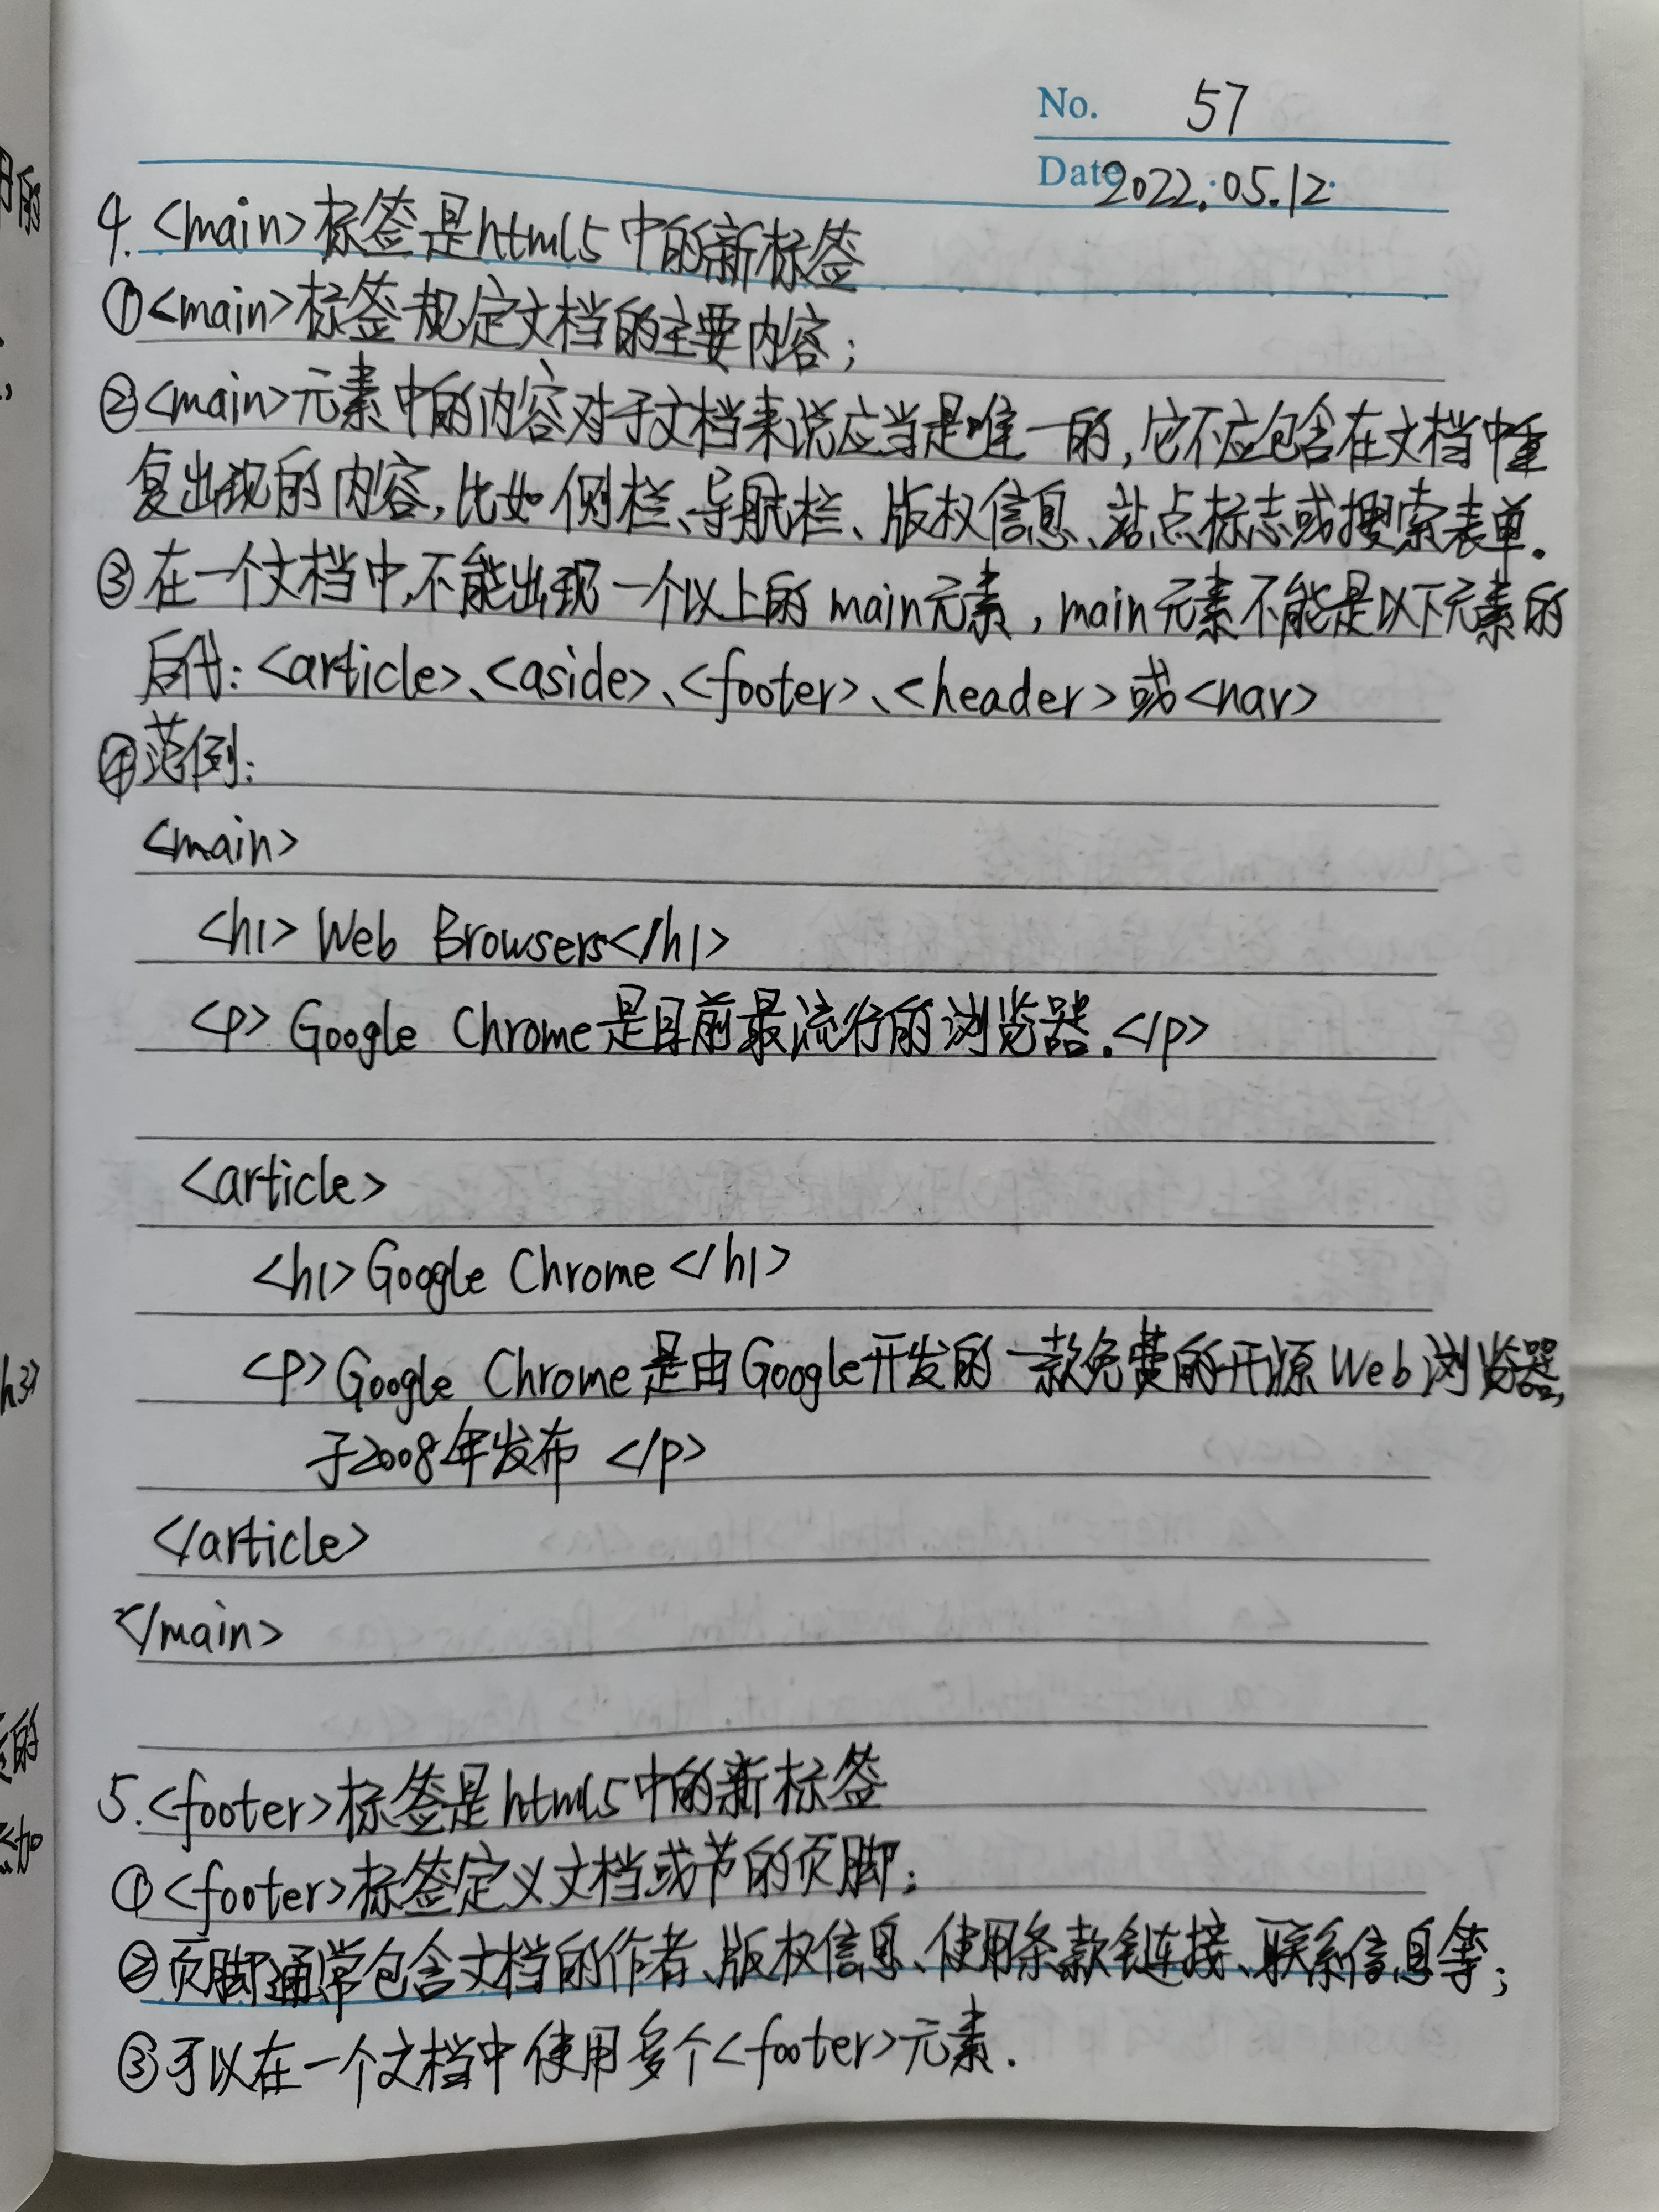 No. 57
Date 2022.05.12.
4.<main>标签是html5中的新标签
①<main>标签规定文档的主要内容;
②<main>元素中的内容对于文档来说应当是唯一的,它不应包含在文档中重
复出现的内容,比如侧栏、导航栏、版权信息、站点标志或搜索表单.
③在一个文档中,不能出现一个以上的main元素,main元素不能是以下元素的
后代:<article>、<aside>、<footer>、<header>或<nav>
④范例:
<main>
<h1>Web Browsers</h1>
<p>Google Chrome是目前最流行的浏览器.</p>
<article>
<h1>Google Chrome</h1>
<p>Google Chrome是由Google开发的一款免费的开源Web浏览器,
于2008年发布</p>
</article>
</main>
5.<footer>标签是html5中的新标签
①<footer>标签定义文档或节的页脚;
②页脚通常包含文档的作者、版权信息、使用条款链接、联系信息等;
③可以在一个文档中使用多个<footer>元素.